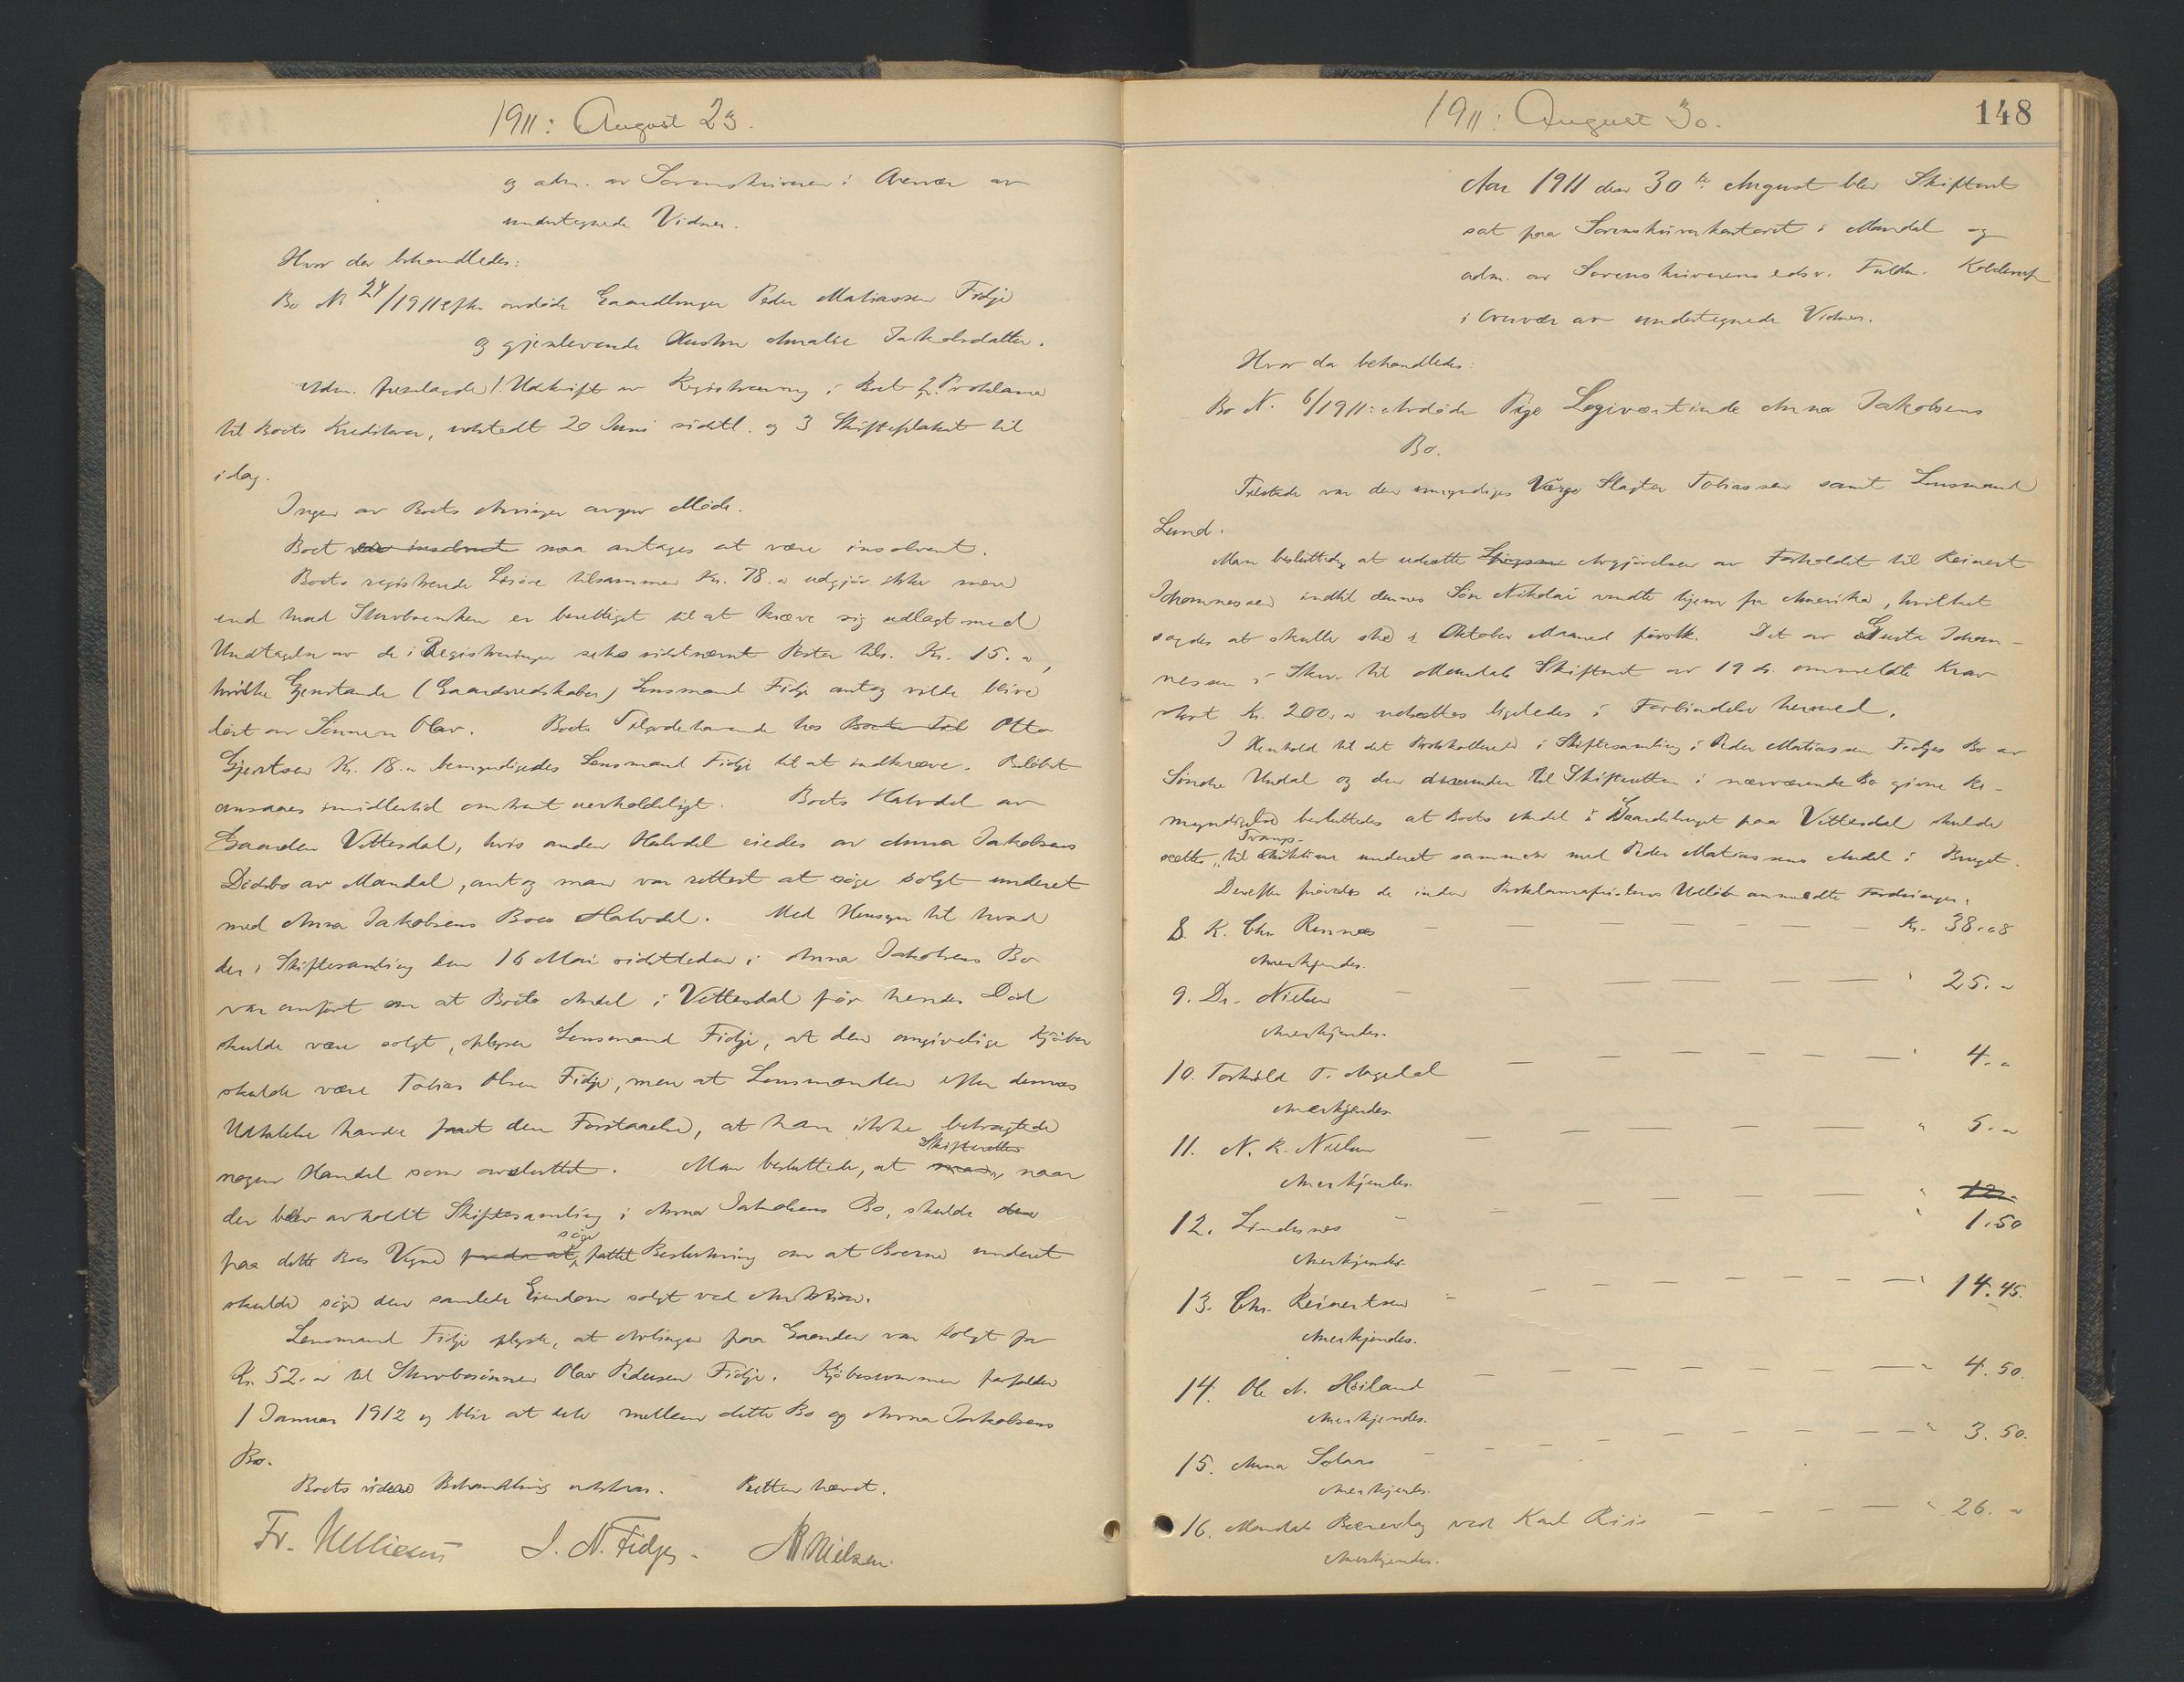 1911: August 23.
og adm. av Sorenskriveren i Overvær av
undertegnede Vidner.
Hvor da behandledes:
Bo N. 24/1911 efter avdöde Gaardbruger Peder Matiassen Fidje
og gjenlevende Hustru Amalie Jakobsdatter.
Adm. fremlagde 1. Utskrift av Registrering i Boet 2. Proklama
til Boets Kreditorer, utstedt 20 Juni sidstl. og 3 Skifteplakat til
idag.
Ingen av Boets Arvinger avgav Möde.
Boet var insolvent maa antages at være insolvent.
Boets registrerede Lösöre tilsammen Kr. 78.- udgjör ikke mere
end hvad Stervboenken er berettiget til at kræve sig udlagt med
Undtagelse av de i Registreringen seks sidstnævnte Poster tils. Kr. 15.-,
hvilke Gjenstande (Gaardsredskaber) Lensmand Fidje antog vilde blive
löst av Sönnen Olav. Boets Tilgodehavende hos Boets Til Otto
Gjertsen Kr. 18.- bemyndigedes Lensmand Fidje til at indkræve. Belöbet
ansaaes imidlertid omtrent uerholdeligt. Boets Halvdel av
Gaarden Vittesdal, hvis anden Halvdel eiedes av Anna Jakobsens
Dödsbo av Mandal, antog man var rettest at söge solgt underet
med Anna Jakobsens Boes Halvdel. Med Hensyn til hvad
der i Skiftesamling den 16 Mai sidstleden i Anna Jakobsens Bo
var anfört om at Boets Andel i Vittesdal för hendes Död
skulde være solgt, oplyser Lensmand Fidje, at den angivelige Kjöber
skulde være Tobias Olsen Fidje, men at Lensmanden efter dennes
Udtalelse havde faaet den Forstaaelse, at han ikke betragtede
nogen Handel som avsluttet. Man besluttede, at man Skifteretten, naar
der blev avholdt Skiftesamling i Anna Jakobsens Bo, skulde den
paa dette Boes Vegne söge fattet Beslutning om at Boerne underet
skulde söge den samlede Eiendom solgt ved Auktion.
Lensmand Fidje oplyste, at Avlingen paa Gaarden var solgt for
Kr. 52.- til Stervbosönnen Olav Pedersen Fidje. Kjöbesummen forfalder
1 Januar 1912 og blir at dele mellem dette Bo og Anna Jakobsens
Bo.
Boets videre Behandling utstaar. Retten hævet.
J. N. Fidje. Nilsen.
1911: August 30.
148
Aar 1911 den 30te August blev Skifteret
sat paa Sorenskriverkontoret i Mandal og
adm. av Sorenskriverens edsv. Fuldm. Kolderup
i Overvær av undertegnede Vidner.
Hvor da behandledes:
Bo N. 6/1911: Avdöde Pige Logivertinde Anna Jakobsens
Bo.
Tilstede var den umyndiges Værge Slagter Tobiassen samt Lensmand
Lund.
Man besluttedes at udsætte Avgjörelsen av Forholdet til Reinert
Johannessen indtil dennes Sön Nikolai vendte hjem fra Amerika, hvilket
sagdes at skulle ske i Oktober Maaned förstk. Det av Gusta Johan-
nessen i Skr. til Mandals Skifteret av 19 ds. anmeldte Krav
stort Kr. 200.- utsættes ligeledes i Forbindelse hermed.
I Henhold til det Protokollerede i Skiftesamling i Peder Matiassen Fidjes Bo av
Söndre Undal og den derunder til Skifteretten i nærværende Bo givne Be-
myndigelse besluttedes at Boets Andel i Gaardsbruget paa Vittesdal skulde
sættes til Tvangs-Auktion underet sammen med Peder Matiassens Andel i Bruget.
Derefter prövedes de inden Proklamafristens Utlöb anmeldte Fordringer.
8. K. Chr. Rennes — — — Kr. 38.08
Anerkjendes.
9. Dr. Nielsen — — — " 25.-
Anerkjendes.
10. Torkild T. Aagedal — — — " 4.-
Anerkjendes.
11. N. R. Nielsen — — — " 5.-
Anerkjendes.
12. Lindesnes — — — " 12.- " 1.50
Anerkjendes.
13. Chr. Reinertsen — — — " 14.45.
Anerkjendes.
14. Ole A. Höiland — — — " 4.50.
Anerkjendes.
15. Anna Solaas — — — " 3.50.
Anerkjendes.
16. Mandals ved Karl Riis — — — " 26.-
Anerkjendes.